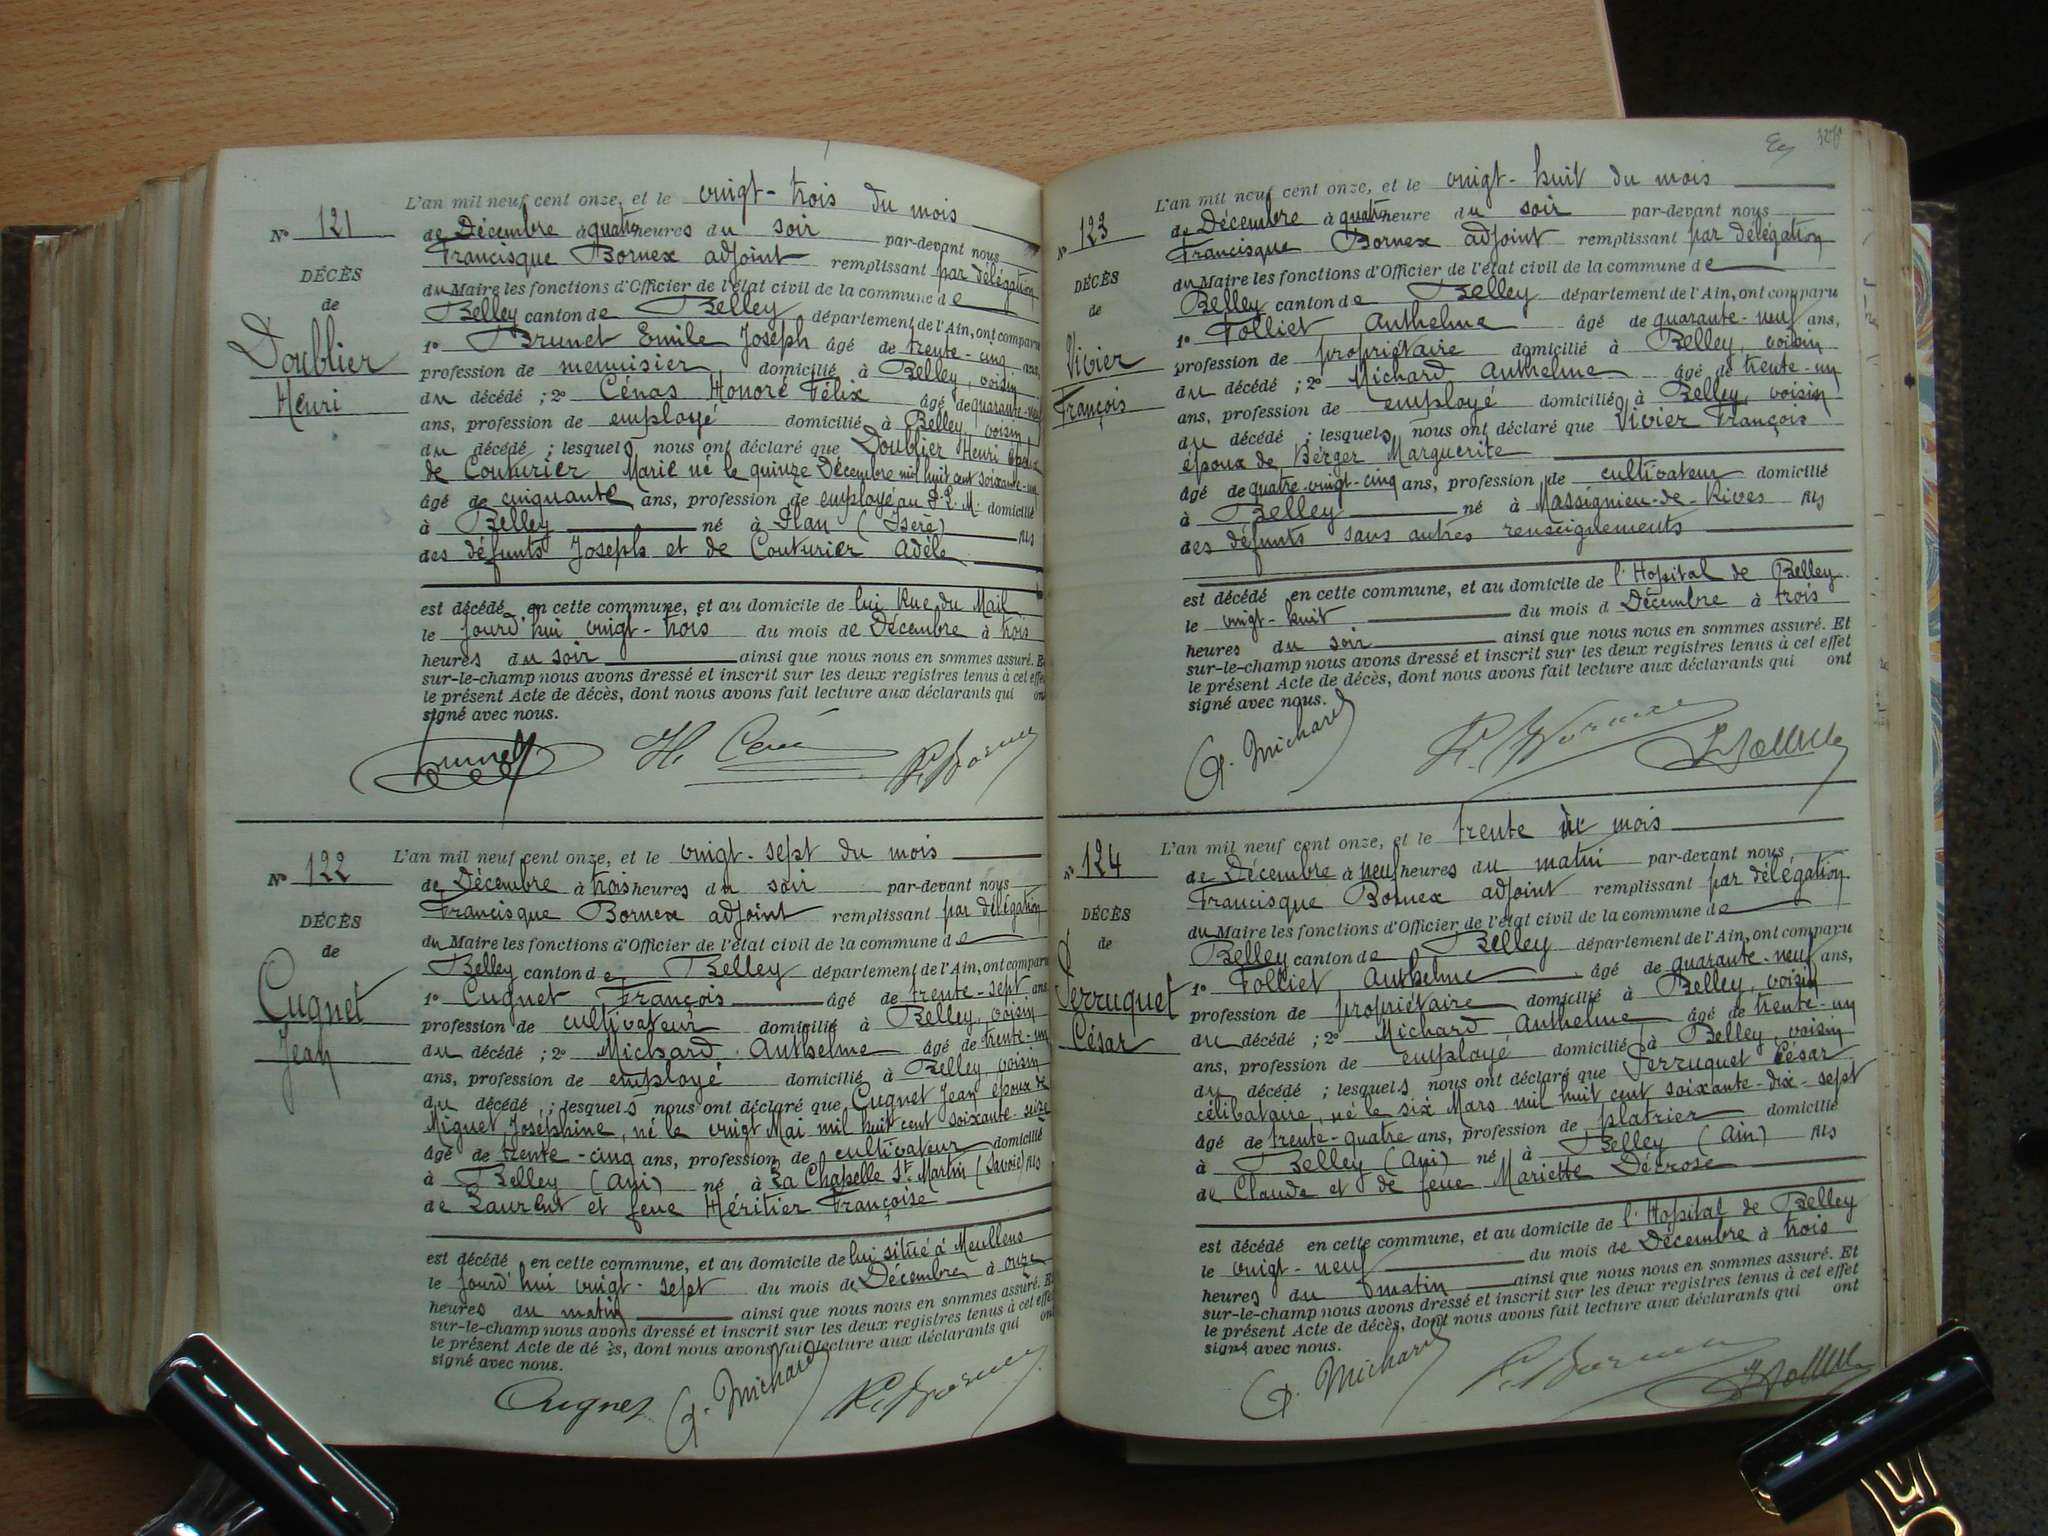 L'an mil neuf cent onze, et le vingt-trois du mois
N° 121
de Décembre à quatre heures du soir par-devant nous
Francisque Bornex adjoint remplissant par délégation
DÉCÈS
du Maire les fonctions d'Officier de l'état civil de la commune de
de
Belley canton de Belley département de l'Ain, ont comparu
Doublier
1° Brunet Emile Joseph âgé de trente-cinq ans,
profession de menuisier domicilié à Belley, voisin
Henri
du décédé ; 2° Cénas Honoré Félix âgé de quarante-neuf
ans, profession de employé domicilié à Belley, voisin
du décédé ; lesquels nous ont déclaré que Doublier Henri époux
de Couturier Marie né le quinze Décembre mil huit cent soixante-un
âgé de cinquante ans, profession de employé au P.L.M. domicilié
à Belley né à (Isère) fils
des défunts Joseph et de Couturier Adèle
est décédé en cette commune, et au domicile de lui Rue du Mail
le jourd'hui vingt-trois du mois de Décembre à trois
heures du soir ainsi que nous nous en sommes assuré. Et
sur-le-champ nous avons dressé et inscrit sur les deux registres tenus à cet effet
le présent Acte de décès, dont nous avons fait lecture aux déclarants qui ont
signé avec nous.
Brunet H. Cénas F. Bornex
L'an mil neuf cent onze, et le vingt-sept du mois
N° 122
de Décembre à trois heures du soir par-devant nous
Francisque Bornex adjoint remplissant par délégation
DÉCÈS
du Maire les fonctions d'Officier de l'état civil de la commune de
de
Belley canton de Belley département de l'Ain, ont comparu
Cugnet
1° Cugnet François âgé de trente-sept ans
profession de cultivateur domicilié à Belley, voisin
Jean
du décédé ; 2° Michard Anthelme âgé de trente-un
ans, profession de employé domicilié à Belley, voisin
du décédé ; lesquels nous ont déclaré que Cugnet Jean époux de
Miguet Joséphine, né le vingt Mai mil huit cent soixante-seize
âgé de trente-cinq ans, profession de cultivateur domicilié
à Belley (Ain) né à La Chapelle St Martin (Savoie) fils
de Laurent et feue Héritier Françoise
est décédé en cette commune, et au domicile de lui situé à
le jourd'hui vingt-sept du mois de Décembre à onze
heures du matin ainsi que nous nous en sommes assuré. Et
sur-le-champ nous avons dressé et inscrit sur les deux registres tenus à cet effet
le présent Acte de décès, dont nous avons fait lecture aux déclarants qui ont
signé avec nous.
Cugnet A. Michard F. Bornex
L'an mil neuf cent onze, et le vingt-huit du mois
N° 123
de Décembre à quatre heure du soir par-devant nous
Francisque Bornex adjoint remplissant par délégation
DÉCÈS
du Maire les fonctions d'Officier de l'état civil de la commune de
de
Belley canton de Belley département de l'Ain, ont comparu
1° Folliet Anthelme âgé de quarante-neuf ans,
Vivier
profession de propriétaire domicilié à Belley, voisin
du décédé ; 2° Michard Anthelme âgé de trente-un
François
ans, profession de employé domicilié à Belley, voisin
du décédé ; lesquels nous ont déclaré que Vivier François
époux de Berger Marguerite
âgé de quatre-vingt-cinq ans, profession de cultivateur domicilié
à Belley né à Massignieu-de-Rives fils
des défunts sans autres renseignements
est décédé en cette commune, et au domicile de l'Hopital de Belley
le vingt-huit du mois d Décembre à trois
heures du soir ainsi que nous nous en sommes assuré. Et
sur-le-champ nous avons dressé et inscrit sur les deux registres tenus à cet effet
le présent Acte de décès, dont nous avons fait lecture aux déclarants qui ont
signé avec nous.
A. Michard F. Bornex Folliet
L'an mil neuf cent onze, et le trente du mois
N° 124
de Décembre à neuf heures du matin par-devant nous
Francisque Bornex adjoint remplissant par délégation
DÉCÈS
du Maire les fonctions d'Officier de l'état civil de la commune de
de
Belley canton de Belley département de l'Ain, ont comparu
1° Folliet Anthelme âgé de quarante-neuf ans,
Perruquet
profession de propriétaire domicilié à Belley, voisin
César
du décédé ; 2° Michard Anthelme âgé de trente-un
ans, profession de employé domicilié à Belley, voisin
du décédé ; lesquels nous ont déclaré que Perruquet César
célibataire, né le six Mars mil huit cent soixante-dix-sept
âgé de trente-quatre ans, profession de platrier domicilié
à Belley (Ain) né à Belley (Ain) fils
de Claude et de feue Mariette Décrose
est décédé en cette commune, et au domicile de l'Hopital de Belley
le vingt-neuf du mois de Décembre à trois
heures du matin ainsi que nous nous en sommes assuré. Et
sur-le-champ nous avons dressé et inscrit sur les deux registres tenus à cet effet
le présent Acte de décès, dont nous avons fait lecture aux déclarants qui ont
signé avec nous.
A. Michard F. Bornex Folliet